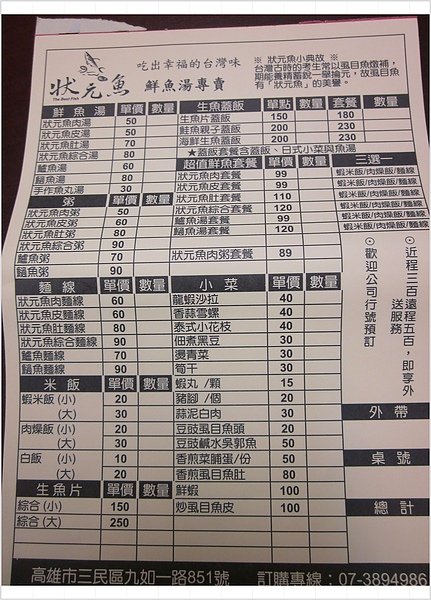 吃出幸福的台灣味
狀元魚
The Best Fish
鮮魚湯專賣
※ 狀元魚小典故 ※
台灣古時的考生常以虱目魚燉補，
期能養精蓄銳一舉掄元，故虱目魚
有「狀元魚」的美譽。
鮮魚湯 單價 數量
狀元魚肉湯 50
狀元魚皮湯 50
狀元魚肚湯 70
狀元魚綜合湯 80
鱸魚湯 60
鮸魚湯 80
手作魚丸湯 30
粥 單價 數量
狀元魚肉粥 50
狀元魚皮粥 60
狀元魚肚粥 80
狀元魚綜合粥 90
鱸魚粥 70
鮸魚粥 90
麵線 單價 數量
狀元魚肉麵線 60
狀元魚皮麵線 60
狀元魚肚麵線 80
狀元魚綜合麵線 90
鱸魚麵線 70
鮸魚麵線 90
米飯 單價 數量
蝦米飯 (小) 20
(大) 30
肉燥飯 (小) 20
(大) 30
白飯 (小) 10
(大) 20
生魚片 單價 數量
綜合 (小) 150
綜合 (大) 250
生魚蓋飯 單點 數量 套餐 數量
生魚片蓋飯 150 180
鮭魚親子蓋飯 200 230
海鮮生魚蓋飯 200 230
★蓋飯套餐含蓋飯、日式小菜與魚湯
超值鮮魚套餐 單價 數量 三選一
狀元魚肉套餐 99 蝦米飯/肉燥飯/麵線
狀元魚皮套餐 99 蝦米飯/肉燥飯/麵線
狀元魚肚套餐 110 蝦米飯/肉燥飯/麵線
狀元魚綜合套餐 120 蝦米飯/肉燥飯/麵線
鱸魚湯套餐 99 蝦米飯/肉燥飯/麵線
鮸魚湯套餐 120 蝦米飯/肉燥飯/麵線
狀元魚肉粥套餐 89
小菜 單價 數量
龍蝦沙拉 40
香蒜雪螺 40
泰式小花枝 40
佃煮黑豆 30
燙青菜 30
筍干 30
蝦丸 /顆 15
豬腳 /個 20
蒜泥白肉 30
豆豉虱目魚頭 20
豆豉鹹水吳郭魚 50
香煎菜脯蛋/份 50
香煎虱目魚肚 80
鮮蝦 100
炒虱目魚皮 100
⊙近程三百遠程五百，即享外
送服務
⊙歡迎公司行號預訂
外帶
桌號
總計
高雄市三民區九如一路851號 訂購專線：07-3894986